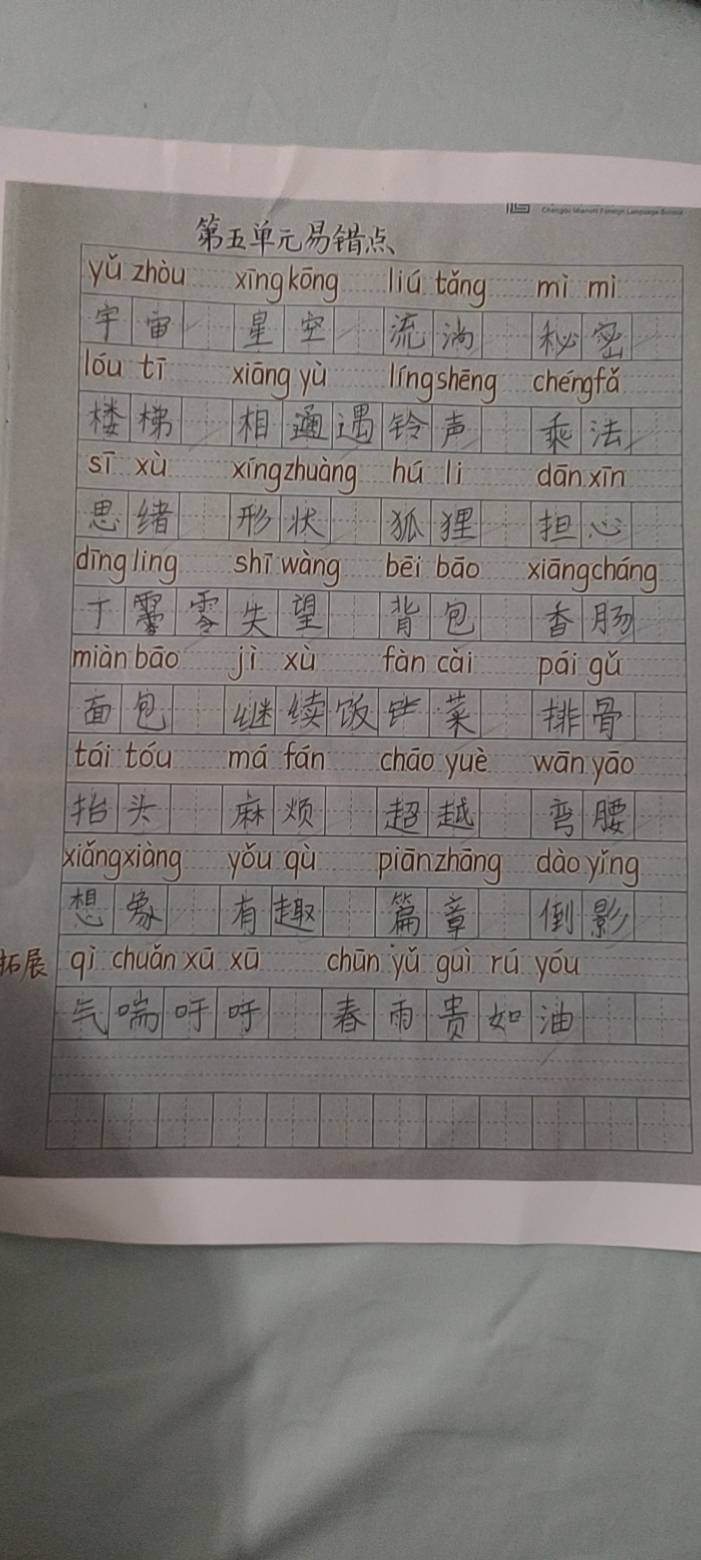 Chengdu Meishi Foreign Language School
第五单元易错点
yǔ zhòu xīng kōng liú tǎng mì mì
宇宙 星空 流淌 秘密
lóu tī xiāng yù líng shēng chéng fǎ
楼梯 相遇 铃声 乘法
sī xù xíng zhuàng hú li dān xīn
思绪 形状 狐狸 担心
dīng ling shī wàng bēi bāo xiāng cháng
丁零 失望 背包 香肠
miàn bāo jì xù fàn cài pái gǔ
面包 继续 饭菜 排骨
tái tóu má fán chāo yuè wān yāo
抬头 麻烦 超越 弯腰
xiǎng xiàng yǒu qù piān zhāng dào yǐng
想象 有趣 篇章 倒影
拓展 qì chuǎn xū xū chūn yǔ guì rú yóu
气喘吁吁 春雨贵如油